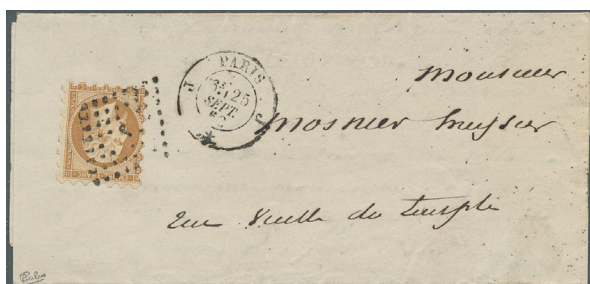 PARIS
J J
3E 25
SEPT.
Monsieur
Mosnier huissier
rue vieille du temple